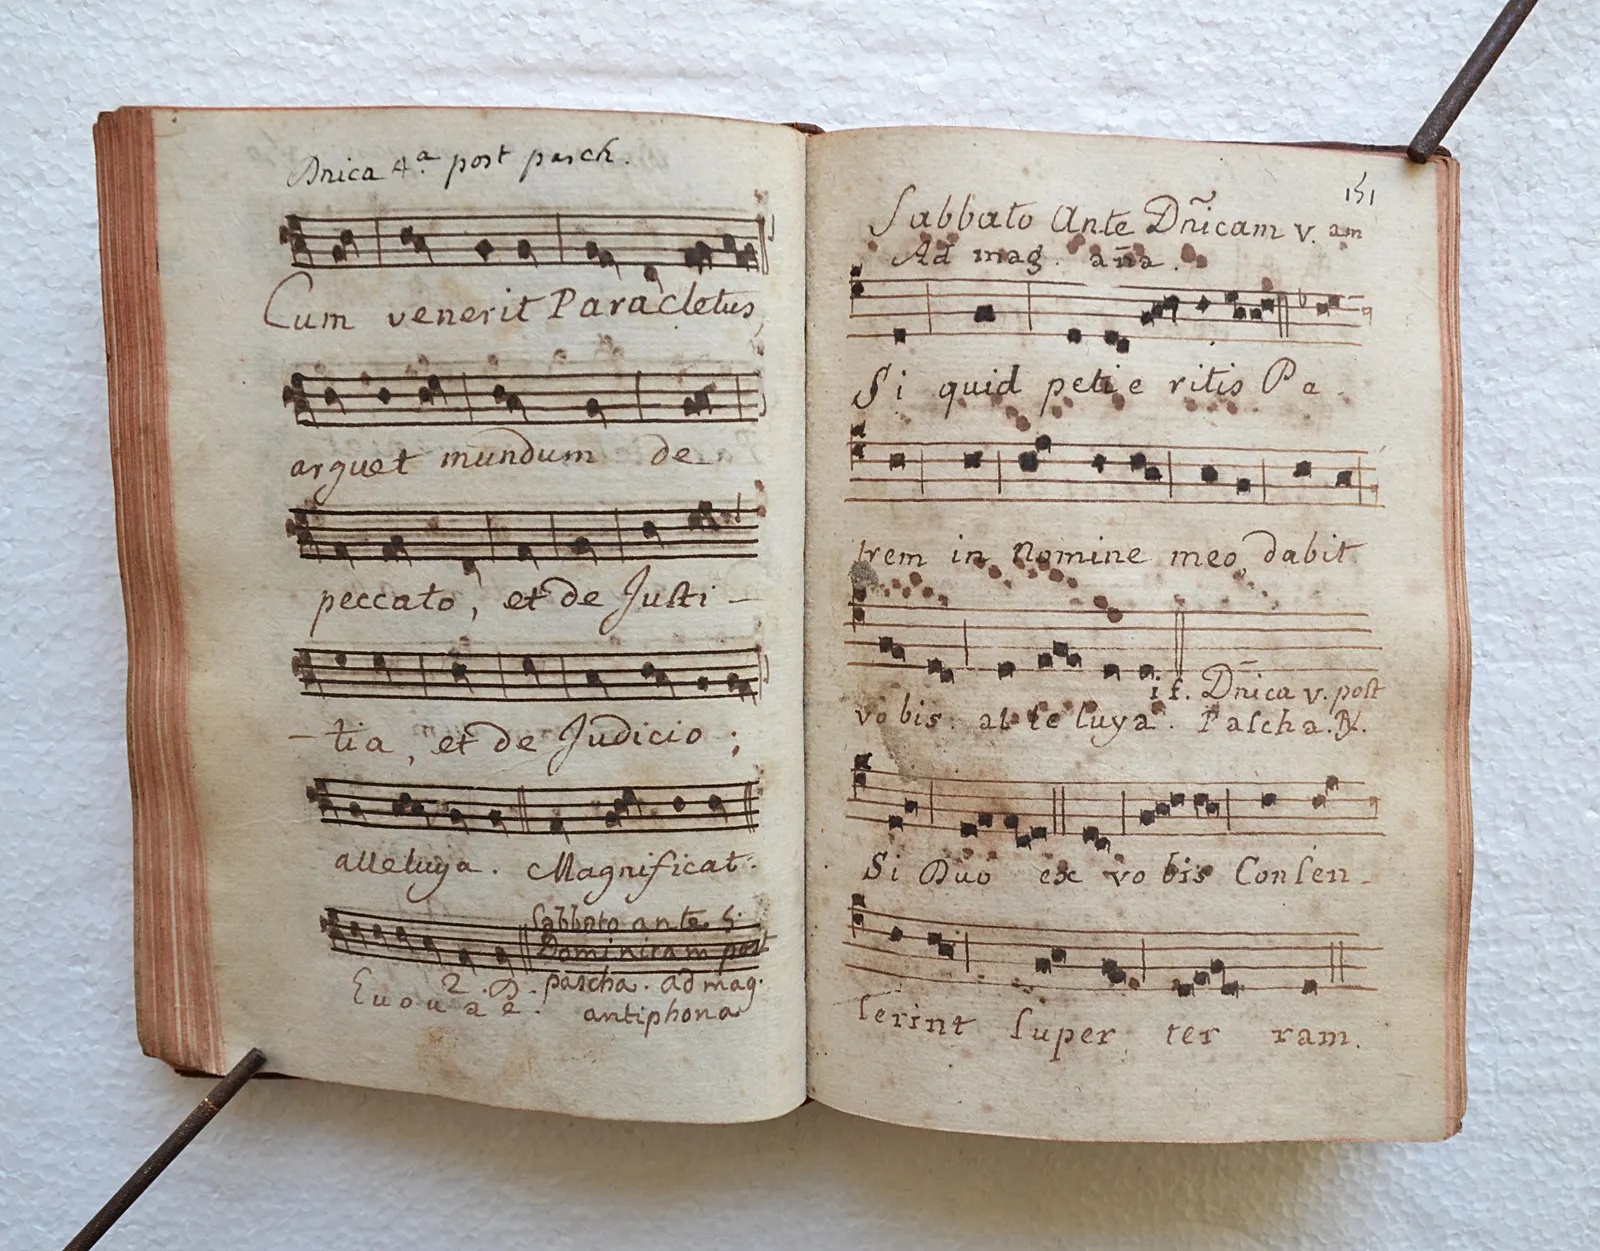 Dnica 4.ª post pasch.
Cum venerit Paracletus,
arguet mundum de
peccato, et de Justi -
- tia, et de Judicio ;
alleluya. Magnificat.
Sabbato ante 5.
Dominicam post
2. D. pascha. ad mag.
Euouae. antiphona
151
Sabbato Ante Dñicam v. am
Ad mag. aña.
Si quid petie ritis Pa -
trem in nomine meo, dabit
vobis al le luya.
if. Dñica v. post
Pascha. ℟.
Si Duo ex vo bis Consen -
serint super ter ram.